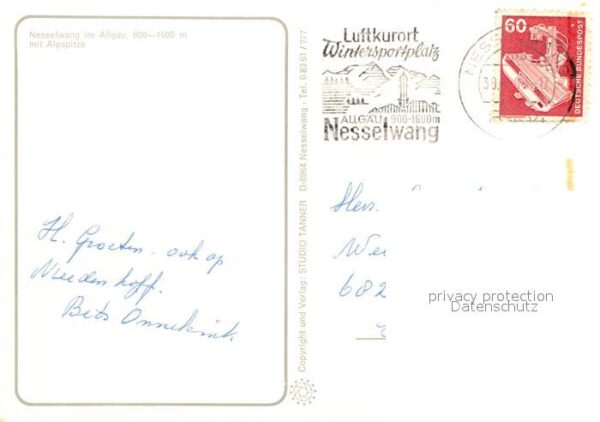 Nesselwang im Allgäu, 900—1600 m
mit Alpspitze
H. Groeten ook op
Bets
Copyright und Verlag: STUDIO TANNER D-8964 Nesselwang - Tel. 0 83 61 / 777
Luftkurort
Wintersportplatz
ALLGÄU 900-1600m
Nesselwang
60
DEUTSCHE BUNDESPOST
682
privacy protection
Datenschutz